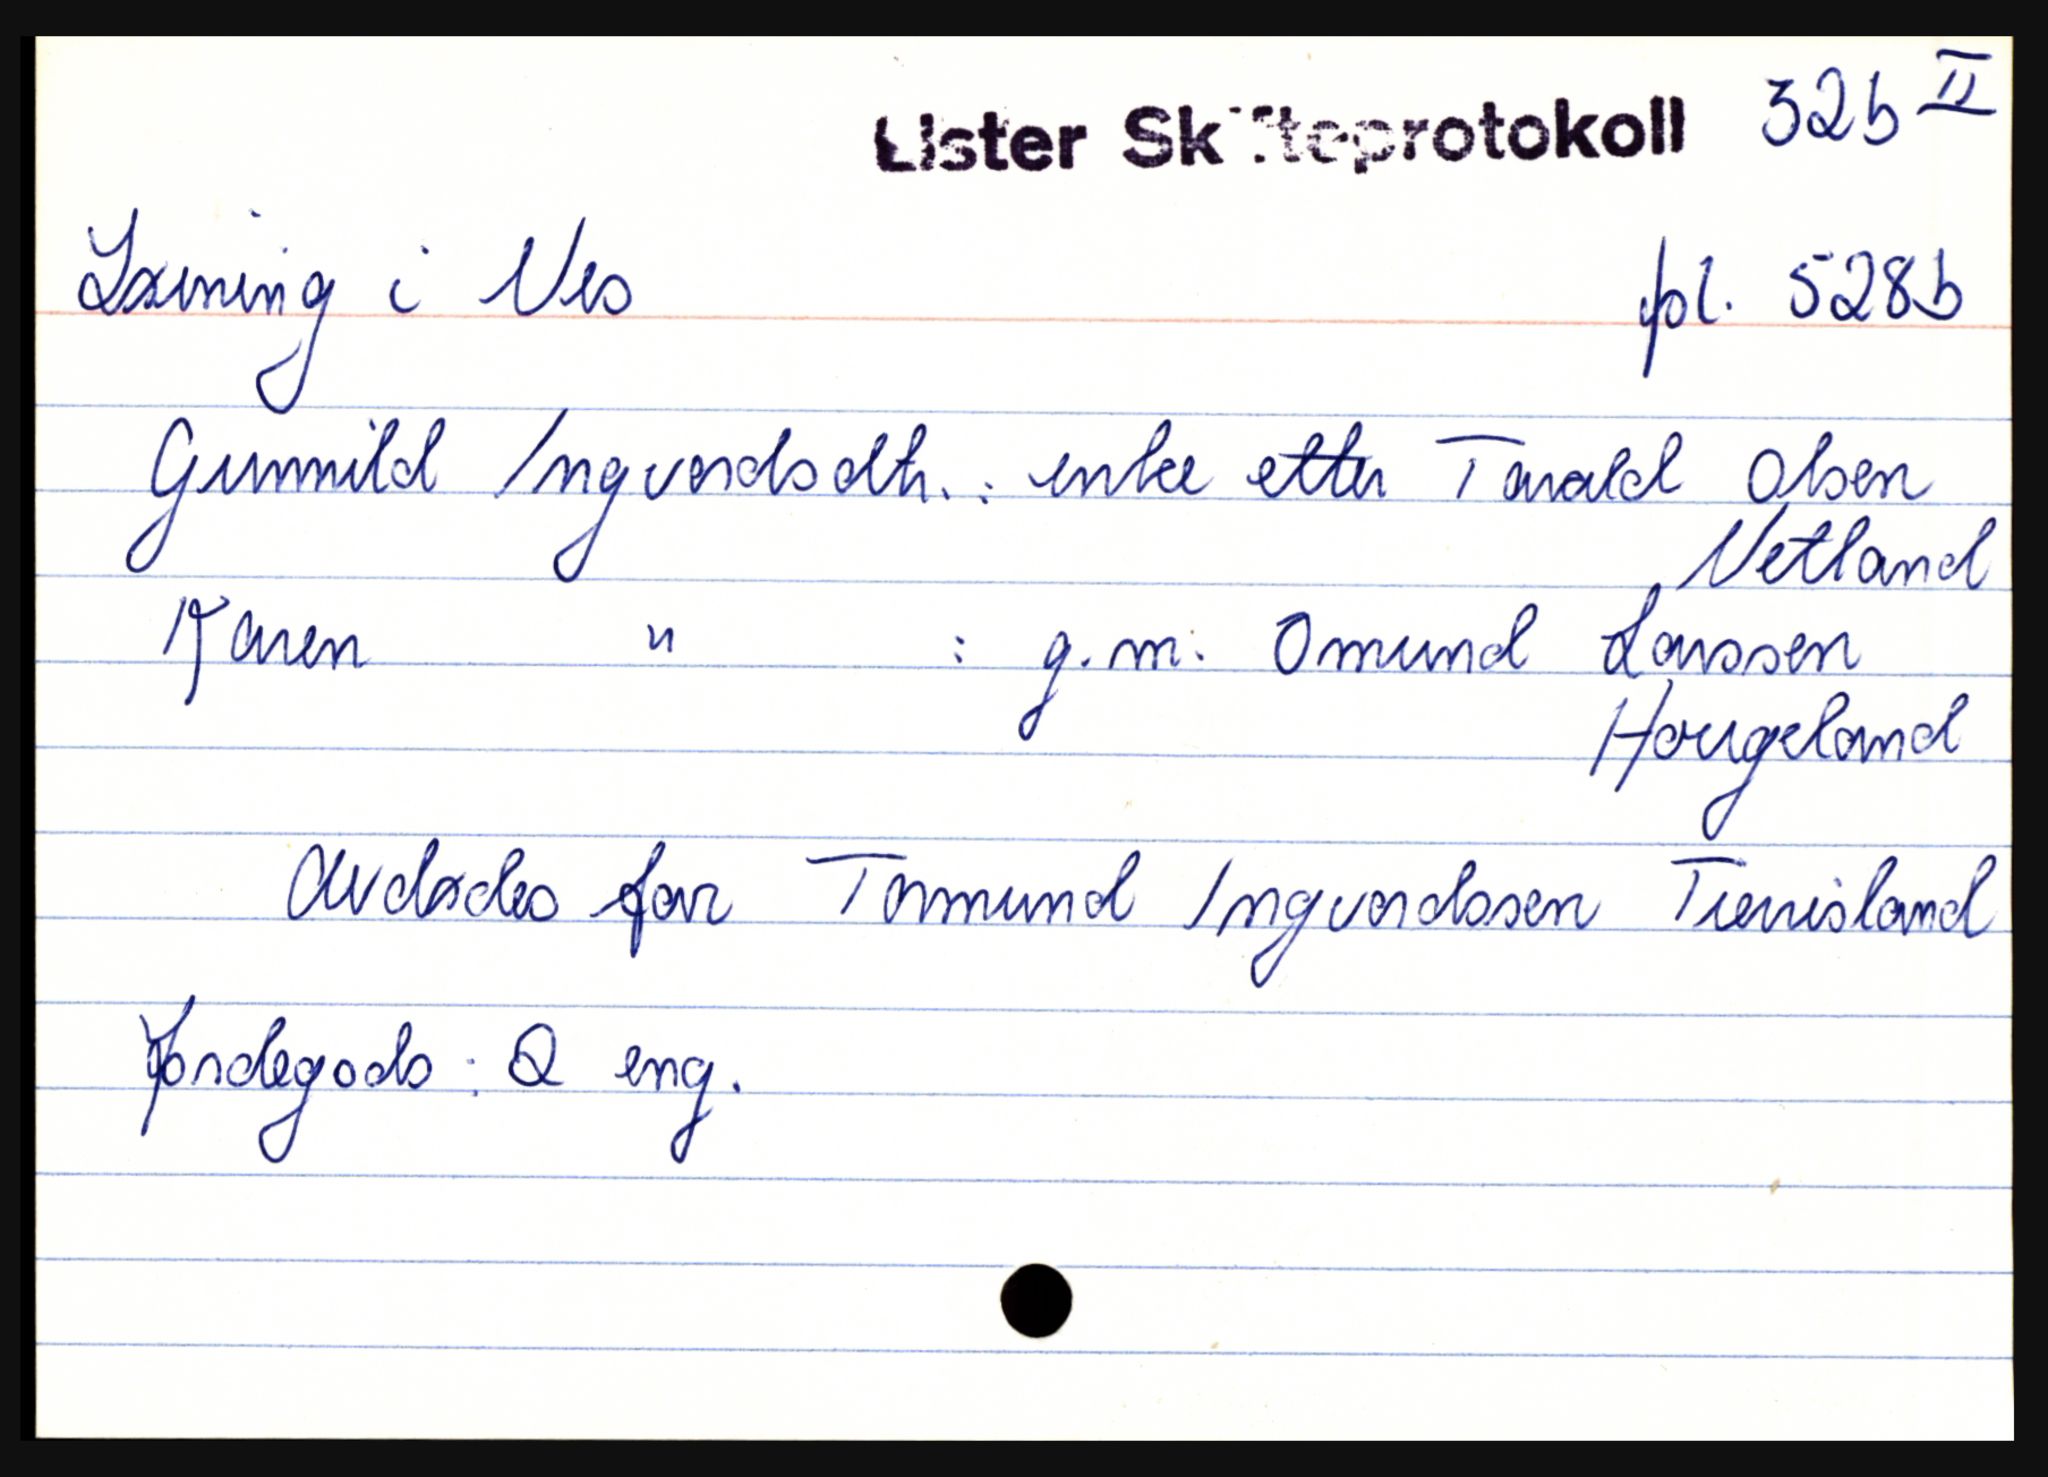 Lister Skifteprotokoll 32b II
Løining i Nes fol. 528b
Gunnild Ingvordsdtr.: enke etter Tarald Olsen
Netland
Karen " : g.m: Omund Larssen
Hougeland
avdødes far Tormund Ingvordssen
Jordegods: 2 eng.